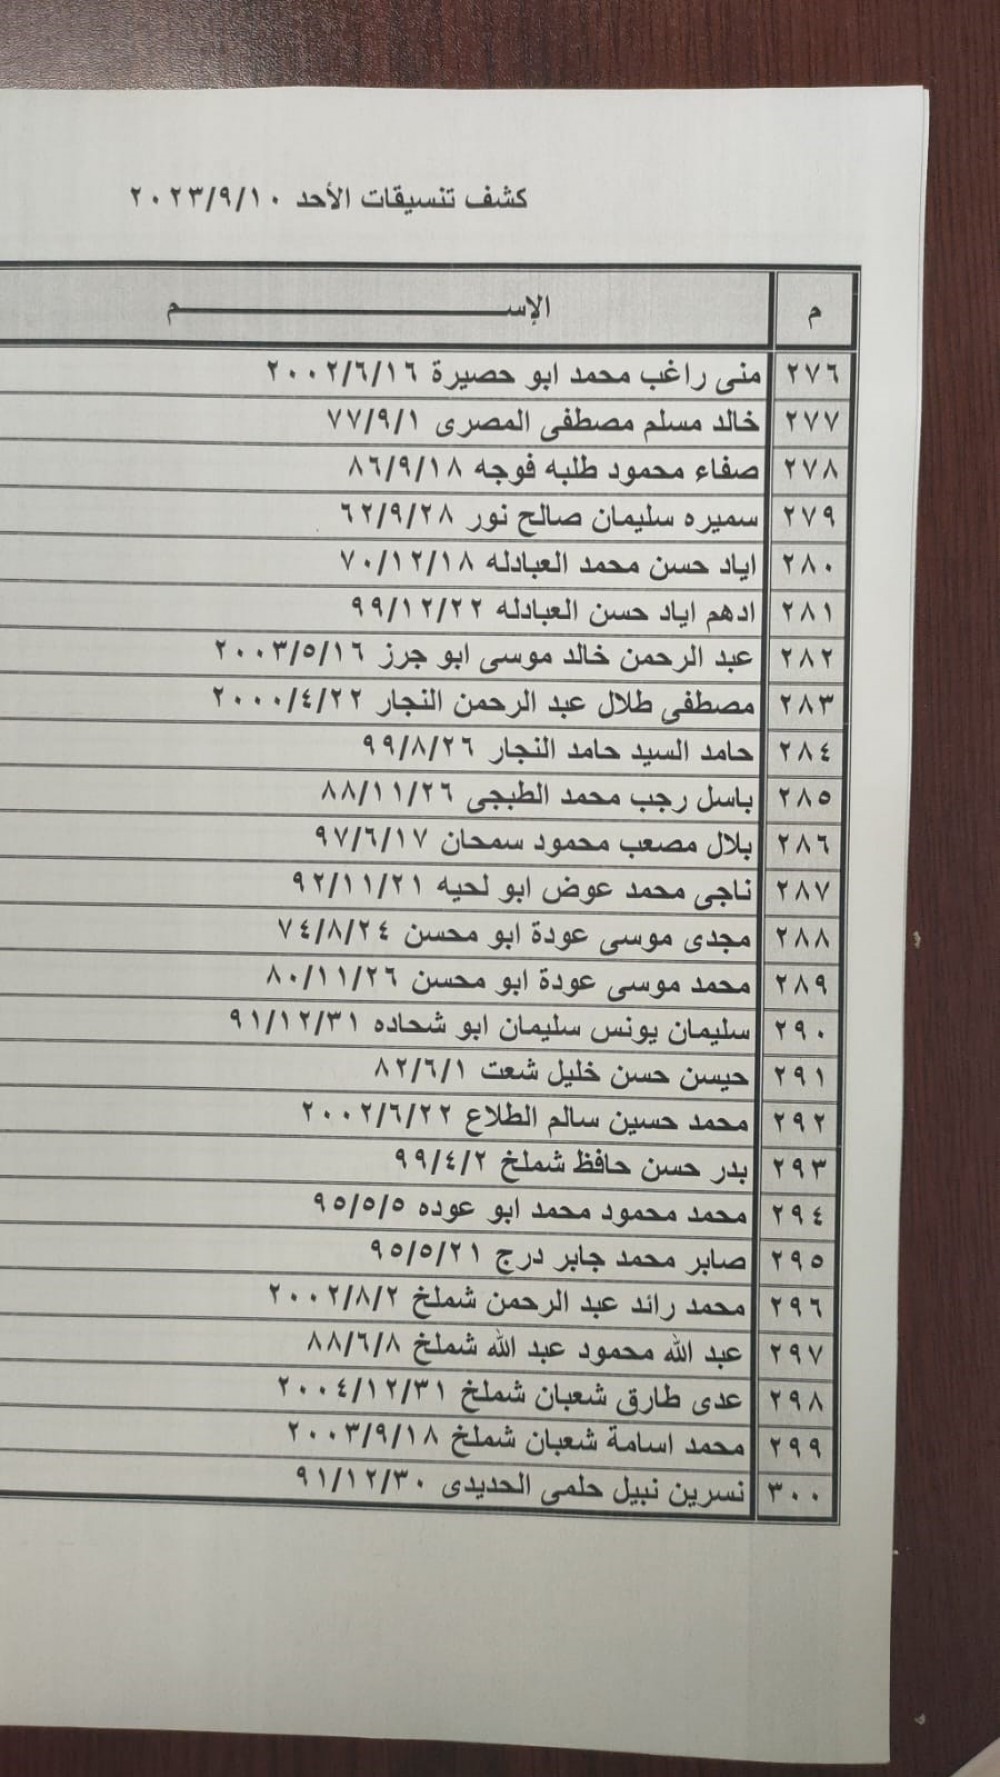 كشف تنسيقات الأحد ٢٠٢٣/٩/١٠
م الإســـــــــــم
٢٧٦ منى راغب محمد ابو حصيرة ٢٠٠٢/٦/١٦
٢٧٧ خالد مسلم مصطفى المصرى ٧٧/٩/١
٢٧٨ صفاء محمود طلبه فوجه ٨٦/٩/١٨
٢٧٩ سميره سليمان صالح نور ٦٢/٩/٢٨
٢٨٠ اياد حسن محمد العبادله ٧٠/١٢/١٨
٢٨١ ادهم اياد حسن العبادله ٩٩/١٢/٢٢
٢٨٢ عبد الرحمن خالد موسى ابو جرز ٢٠٠٣/٥/١٦
٢٨٣ مصطفى طلال عبد الرحمن النجار ٢٠٠٠/٤/٢٢
٢٨٤ حامد السيد حامد النجار ٩٩/٨/٢٦
٢٨٥ باسل رجب محمد الطبجى ٨٨/١١/٢٦
٢٨٦ بلال مصعب محمود سمحان ٩٧/٦/١٧
٢٨٧ ناجى محمد عوض ابو لحيه ٩٢/١١/٢١
٢٨٨ مجدى موسى عودة ابو محسن ٧٤/٨/٢٤
٢٨٩ محمد موسى عودة ابو محسن ٨٠/١١/٢٦
٢٩٠ سليمان يونس سليمان ابو شحاده ٩١/١٢/٣١
٢٩١ حيسن حسن خليل شعت ٨٢/٦/١
٢٩٢ محمد حسين سالم الطلاع ٢٠٠٢/٦/٢٢
٢٩٣ بدر حسن حافظ شملخ ٩٩/٤/٢
٢٩٤ محمد محمود محمد ابو عوده ٩٥/٥/٥
٢٩٥ صابر محمد جابر درج ٩٥/٥/٢١
٢٩٦ محمد رائد عبد الرحمن شملخ ٢٠٠٢/٨/٢
٢٩٧ عبد الله محمود عبد الله شملخ ٨٨/٦/٨
٢٩٨ عدى طارق شعبان شملخ ٢٠٠٤/١٢/٣١
٢٩٩ محمد اسامة شعبان شملخ ٢٠٠٣/٩/١٨
٣٠٠ نسرين نبيل حلمى الحديدى ٩١/١٢/٣٠